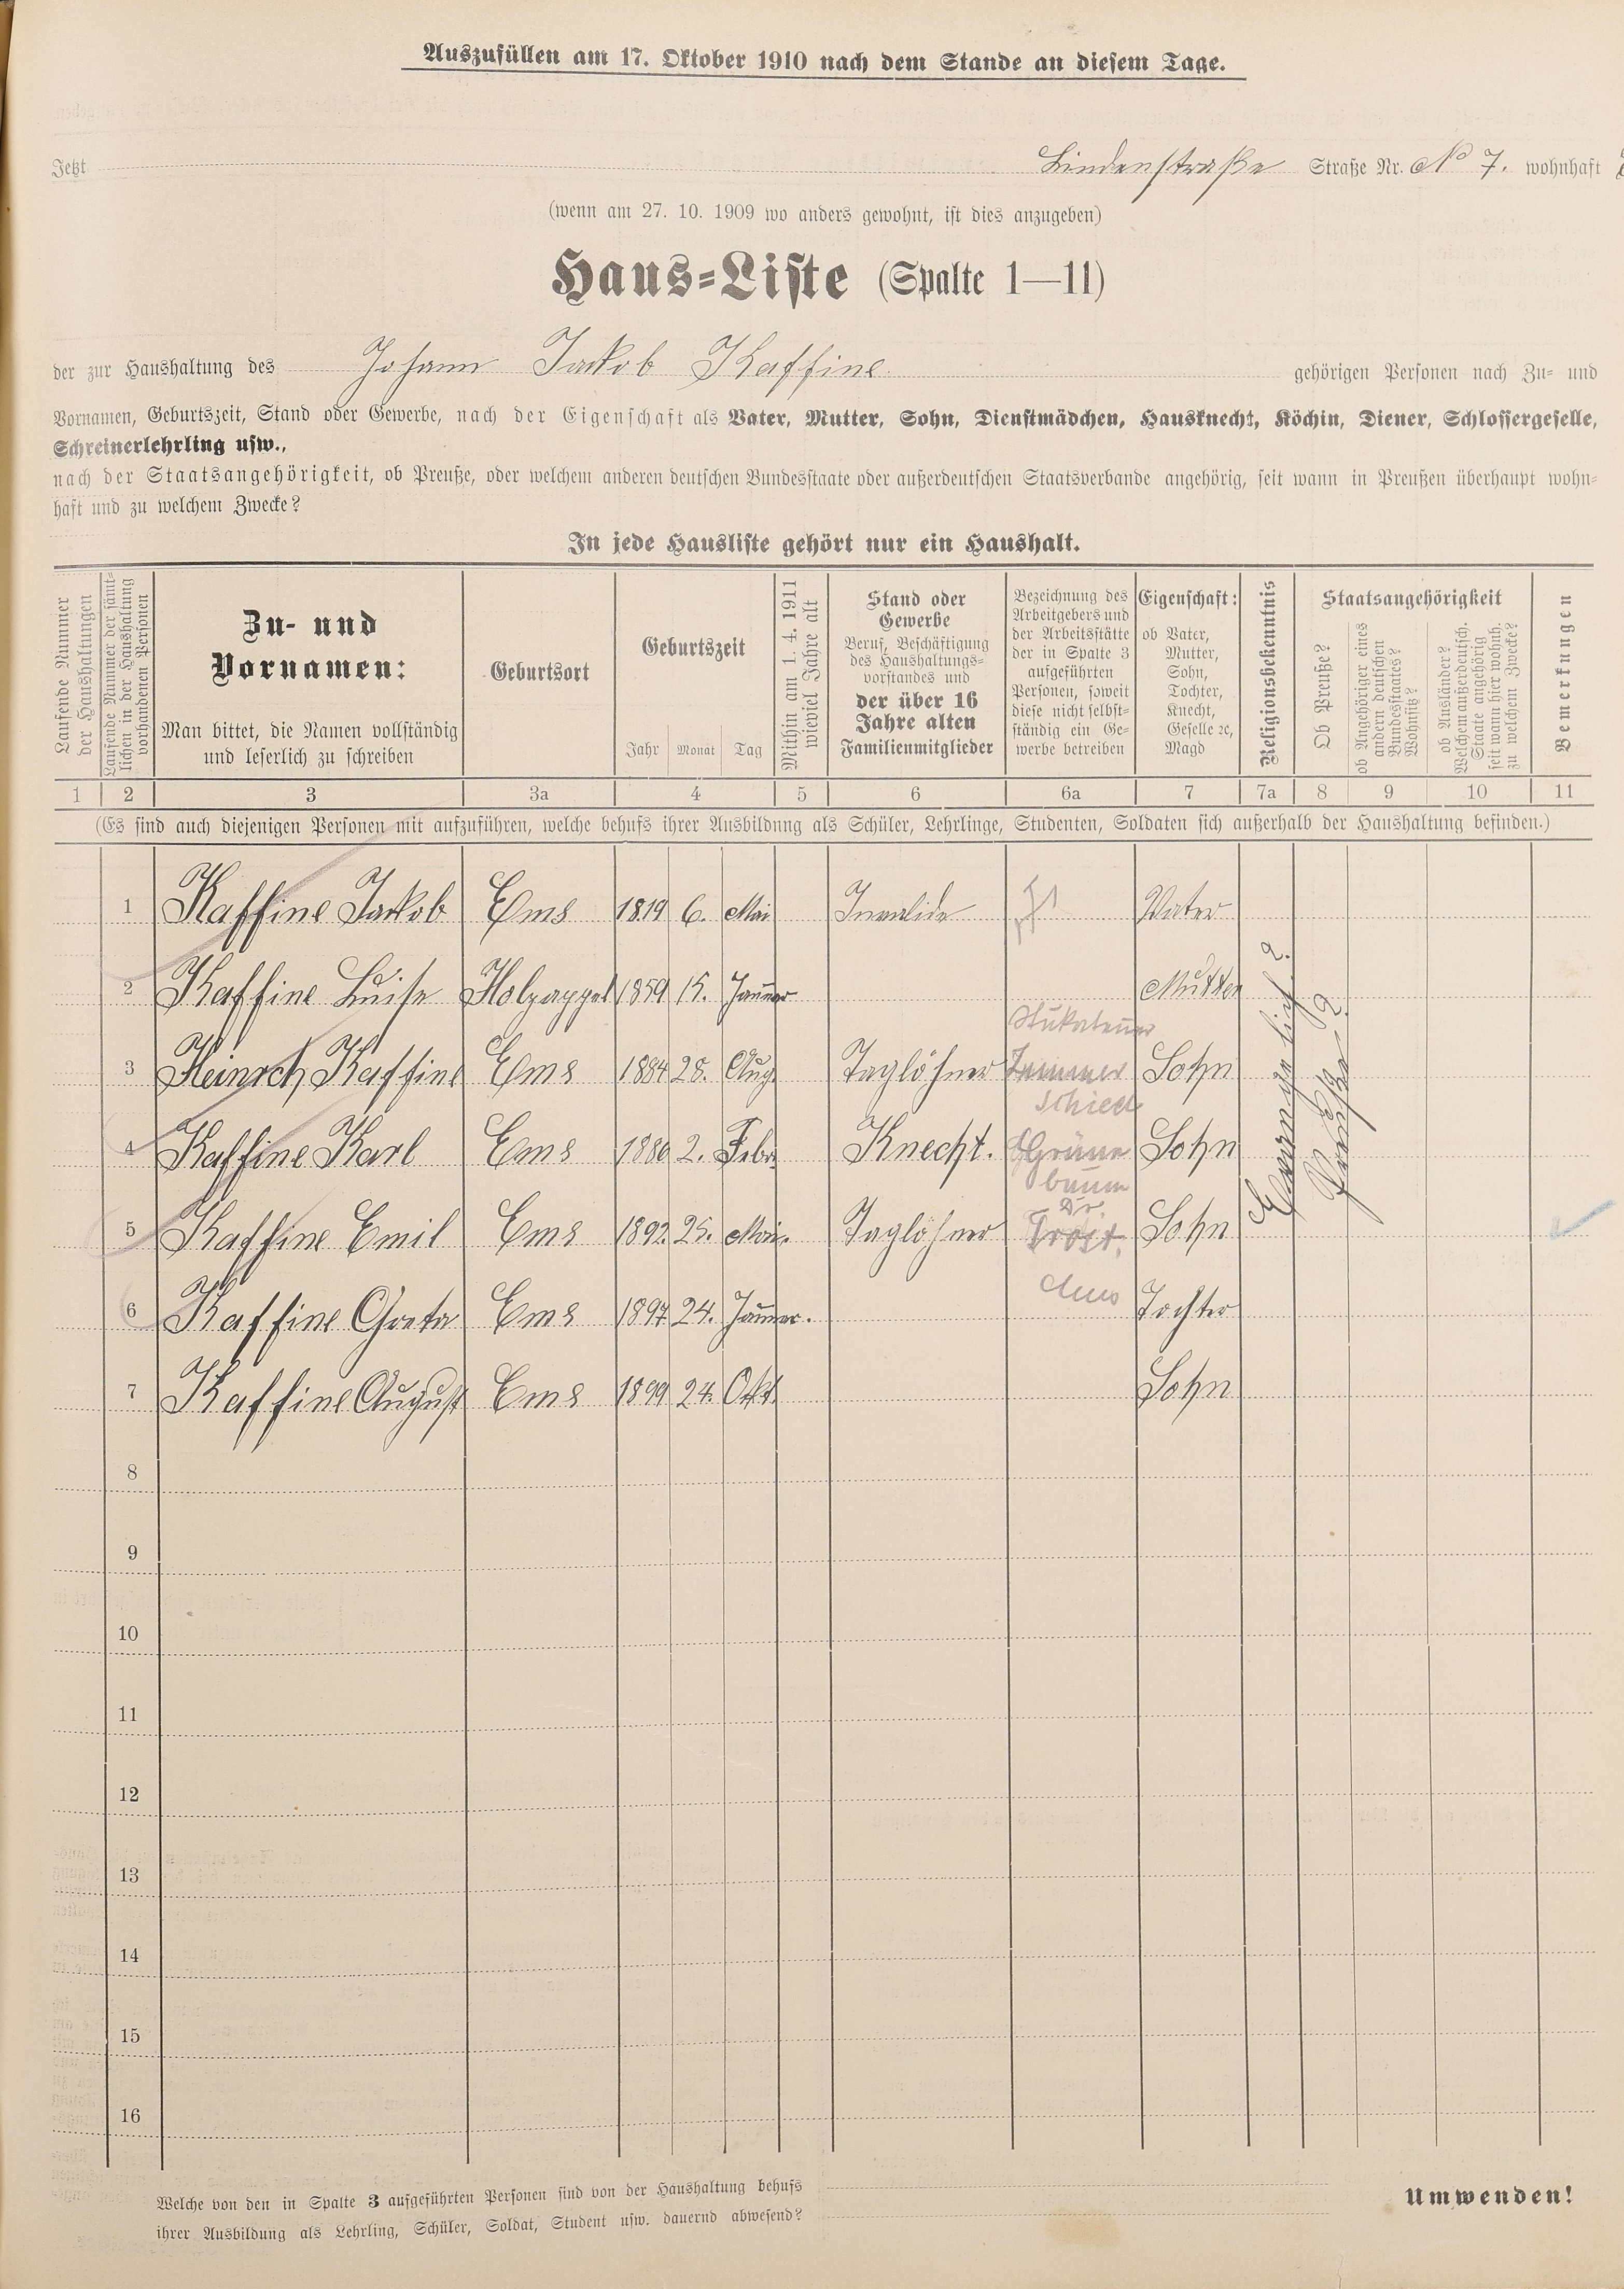 Auszufüllen am 17. Oktober 1910 nach dem Stande an diesem Tage.
Jetzt Lindenstraße Straße Nr. No 7. wohnhaft
(wenn am 27. 10. 1909 wo anders gewohnt, ist dies anzugeben)
Haus-Liste (Spalte 1—11)
der zur Haushaltung des Johann Jakob Kaffine gehörigen Personen nach Zu- und
Vornamen, Geburtszeit, Stand oder Gewerbe, nach der Eigenschaft als Vater, Mutter, Sohn, Dienstmädchen, Hausknecht, Köchin, Diener, Schlossergeselle,
Schreinerlehrling usw.,
nach der Staatsangehörigkeit, ob Preuße, oder welchem anderen deutschen Bundesstaate oder außerdeutschen Staatsverbande angehörig, seit wann in Preußen überhaupt wohn-
haft und zu welchem Zwecke?
In jede Hausliste gehört nur ein Haushalt.
Laufende Nummer
der Haushaltungen
Laufende Nummer der sämt-
lichen in der Haushaltung
vorhandenen Personen
Zu- und
Vornamen:
Man bittet, die Namen vollständig
und leserlich zu schreiben
Geburtsort
Geburtszeit
Jahr Monat Tag
Mithin am 1. 4. 1911
wieviel Jahre alt
Stand oder
Gewerbe
Beruf, Beschäftigung
des Haushaltungs-
vorstandes und
der über 16
Jahre alten
Familienmitglieder
Bezeichnung des
Arbeitgebers und
der Arbeitsstätte
der in Spalte 3
aufgeführten
Personen, soweit
diese nicht selbst-
ständig ein Ge-
werbe betreiben
Eigenschaft:
ob Vater,
Mutter,
Sohn,
Tochter,
Knecht,
Geselle ec,
Magd
Religionsbekenntnis
Staatsangehörigkeit
Ob Preuße?
ob Angehöriger eines
andern deutschen
Bundesstaates?
Wohnsitz?
ob Ausländer?
Welchem außerdeutsch.
Staate angehörig
seit wann hier wohnh.
zu welchem Zwecke?
Bemerkungen
1 2 3 3a 4 5 6 6a 7 7a 8 9 10 11
(Es sind auch diejenigen Personen mit aufzuführen, welche behufs ihrer Ausbildung als Schüler, Lehrlinge, Studenten, Soldaten sich außerhalb der Haushaltung befinden.)
1 Kaffine Jackob Ems 1819 6. Mai Invalide Vater
2 Kaffine Luise Holzappel 1859 15. Januar Mutter
Stukateur
3 Heinrch Kaffine Ems 1884 28. Aug. Taglöhner Zimmer Sohn
schied
4 Kaffine Karl Ems 1886 2. Febr. Knecht. Grüne Sohn
baum
Dr.
5 Kaffine Emil Ems 1892. 25. Mai. Taglöhner Sohn
Ems
6 Kaffine Greta Ems 1897 24. Januar. Tochter
7 Kaffine August Ems 1899 24. Okt. Sohn
Evangelisch
Preuße
8
9
10
11
12
13
14
15
16
Welche von den in Spalte 3 aufgeführten Personen sind von der Haushaltung behufs
ihrer Ausbildung als Lehrling, Schüler, Soldat, Student usw. dauernd abwesend?
Umwenden!